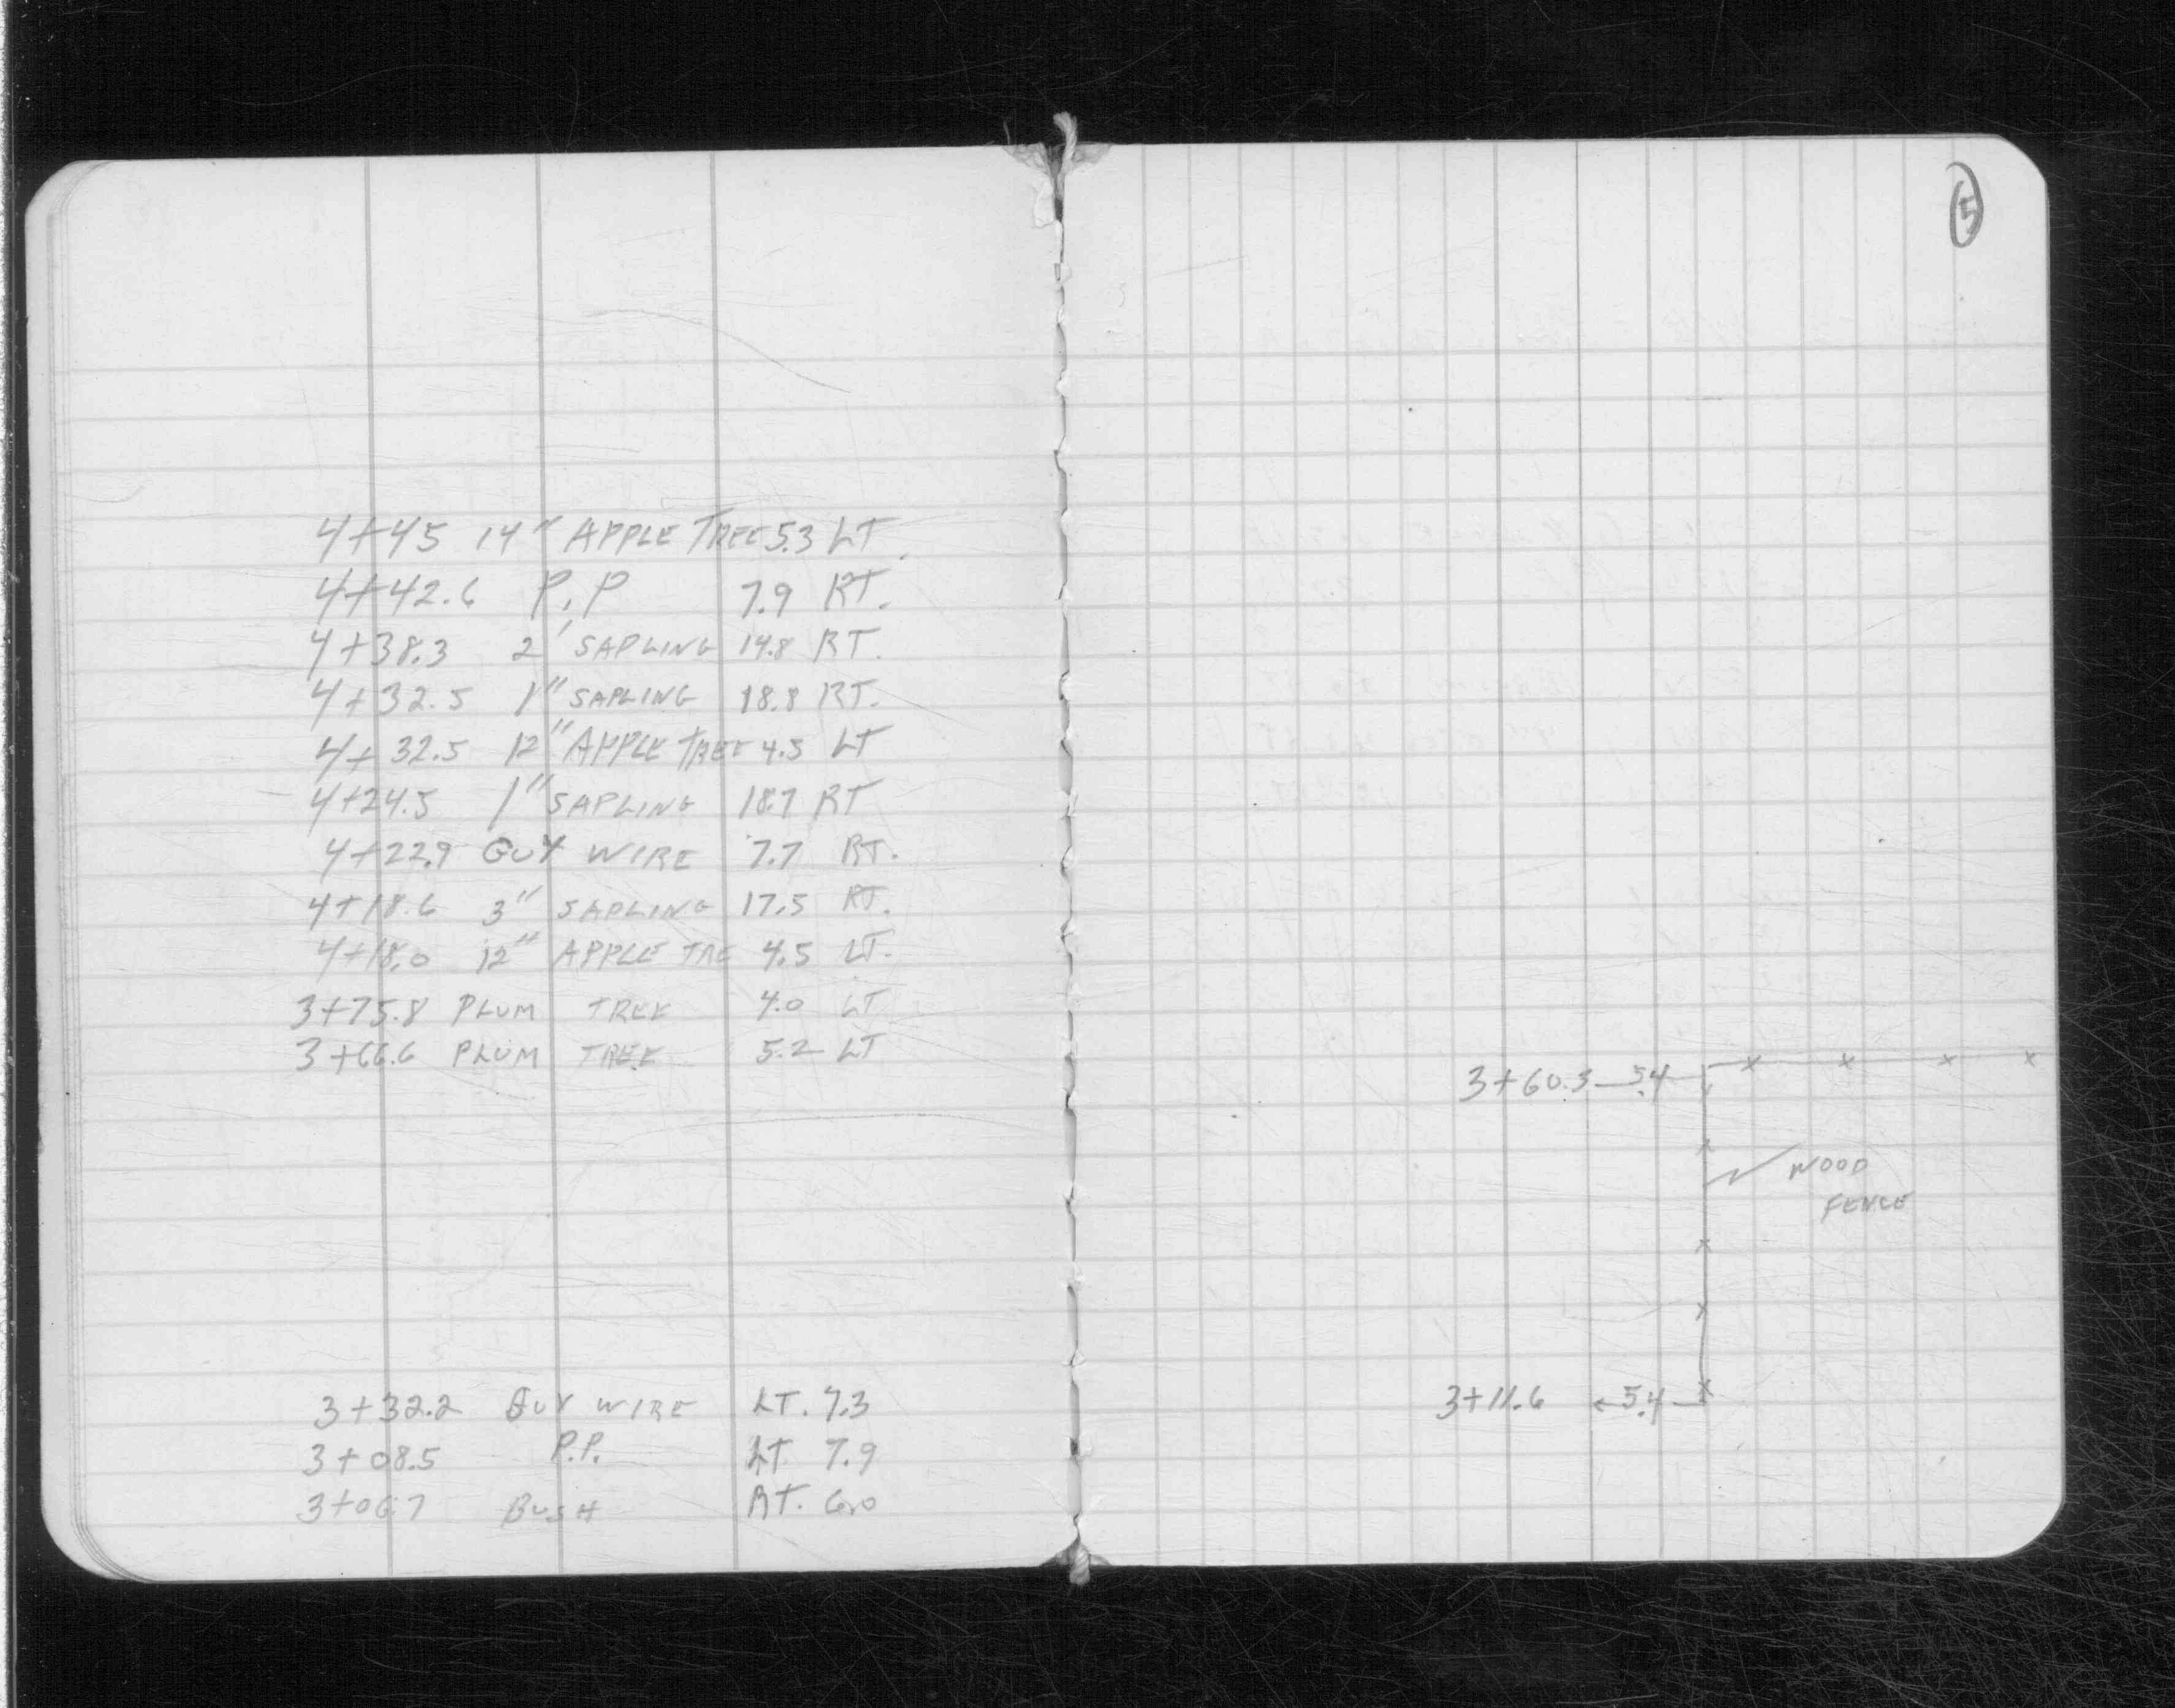 4+45 14" APPLE TREE 5.3 LT.
4+42.6 P.P 7.9 RT.
4+38.3 2' SAPLING 14.8 RT.
4+32.5 1" SAPLING 18.8 RT.
4+32.5 12" APPLE TREE 4.5 LT
4+24.5 1" SAPLING 18.7 RT
4+22.9 GUY WIRE 7.7 RT.
4+18.6 3" SAPLING 17.5 RT.
4+18.0 12" APPLE TRE 4.5 LT.
3+75.8 PLUM TREE 4.0 LT
3+66.6 PLUM TREE 5.2 LT
3+32.2 GUY WIRE LT. 7.3
3+08.5 P.P. LT. 7.9
3+06.7 BUSH RT. 6.0
5
3+60.3 5.4
WOOD
FENCE
3+11.6 ←5.4